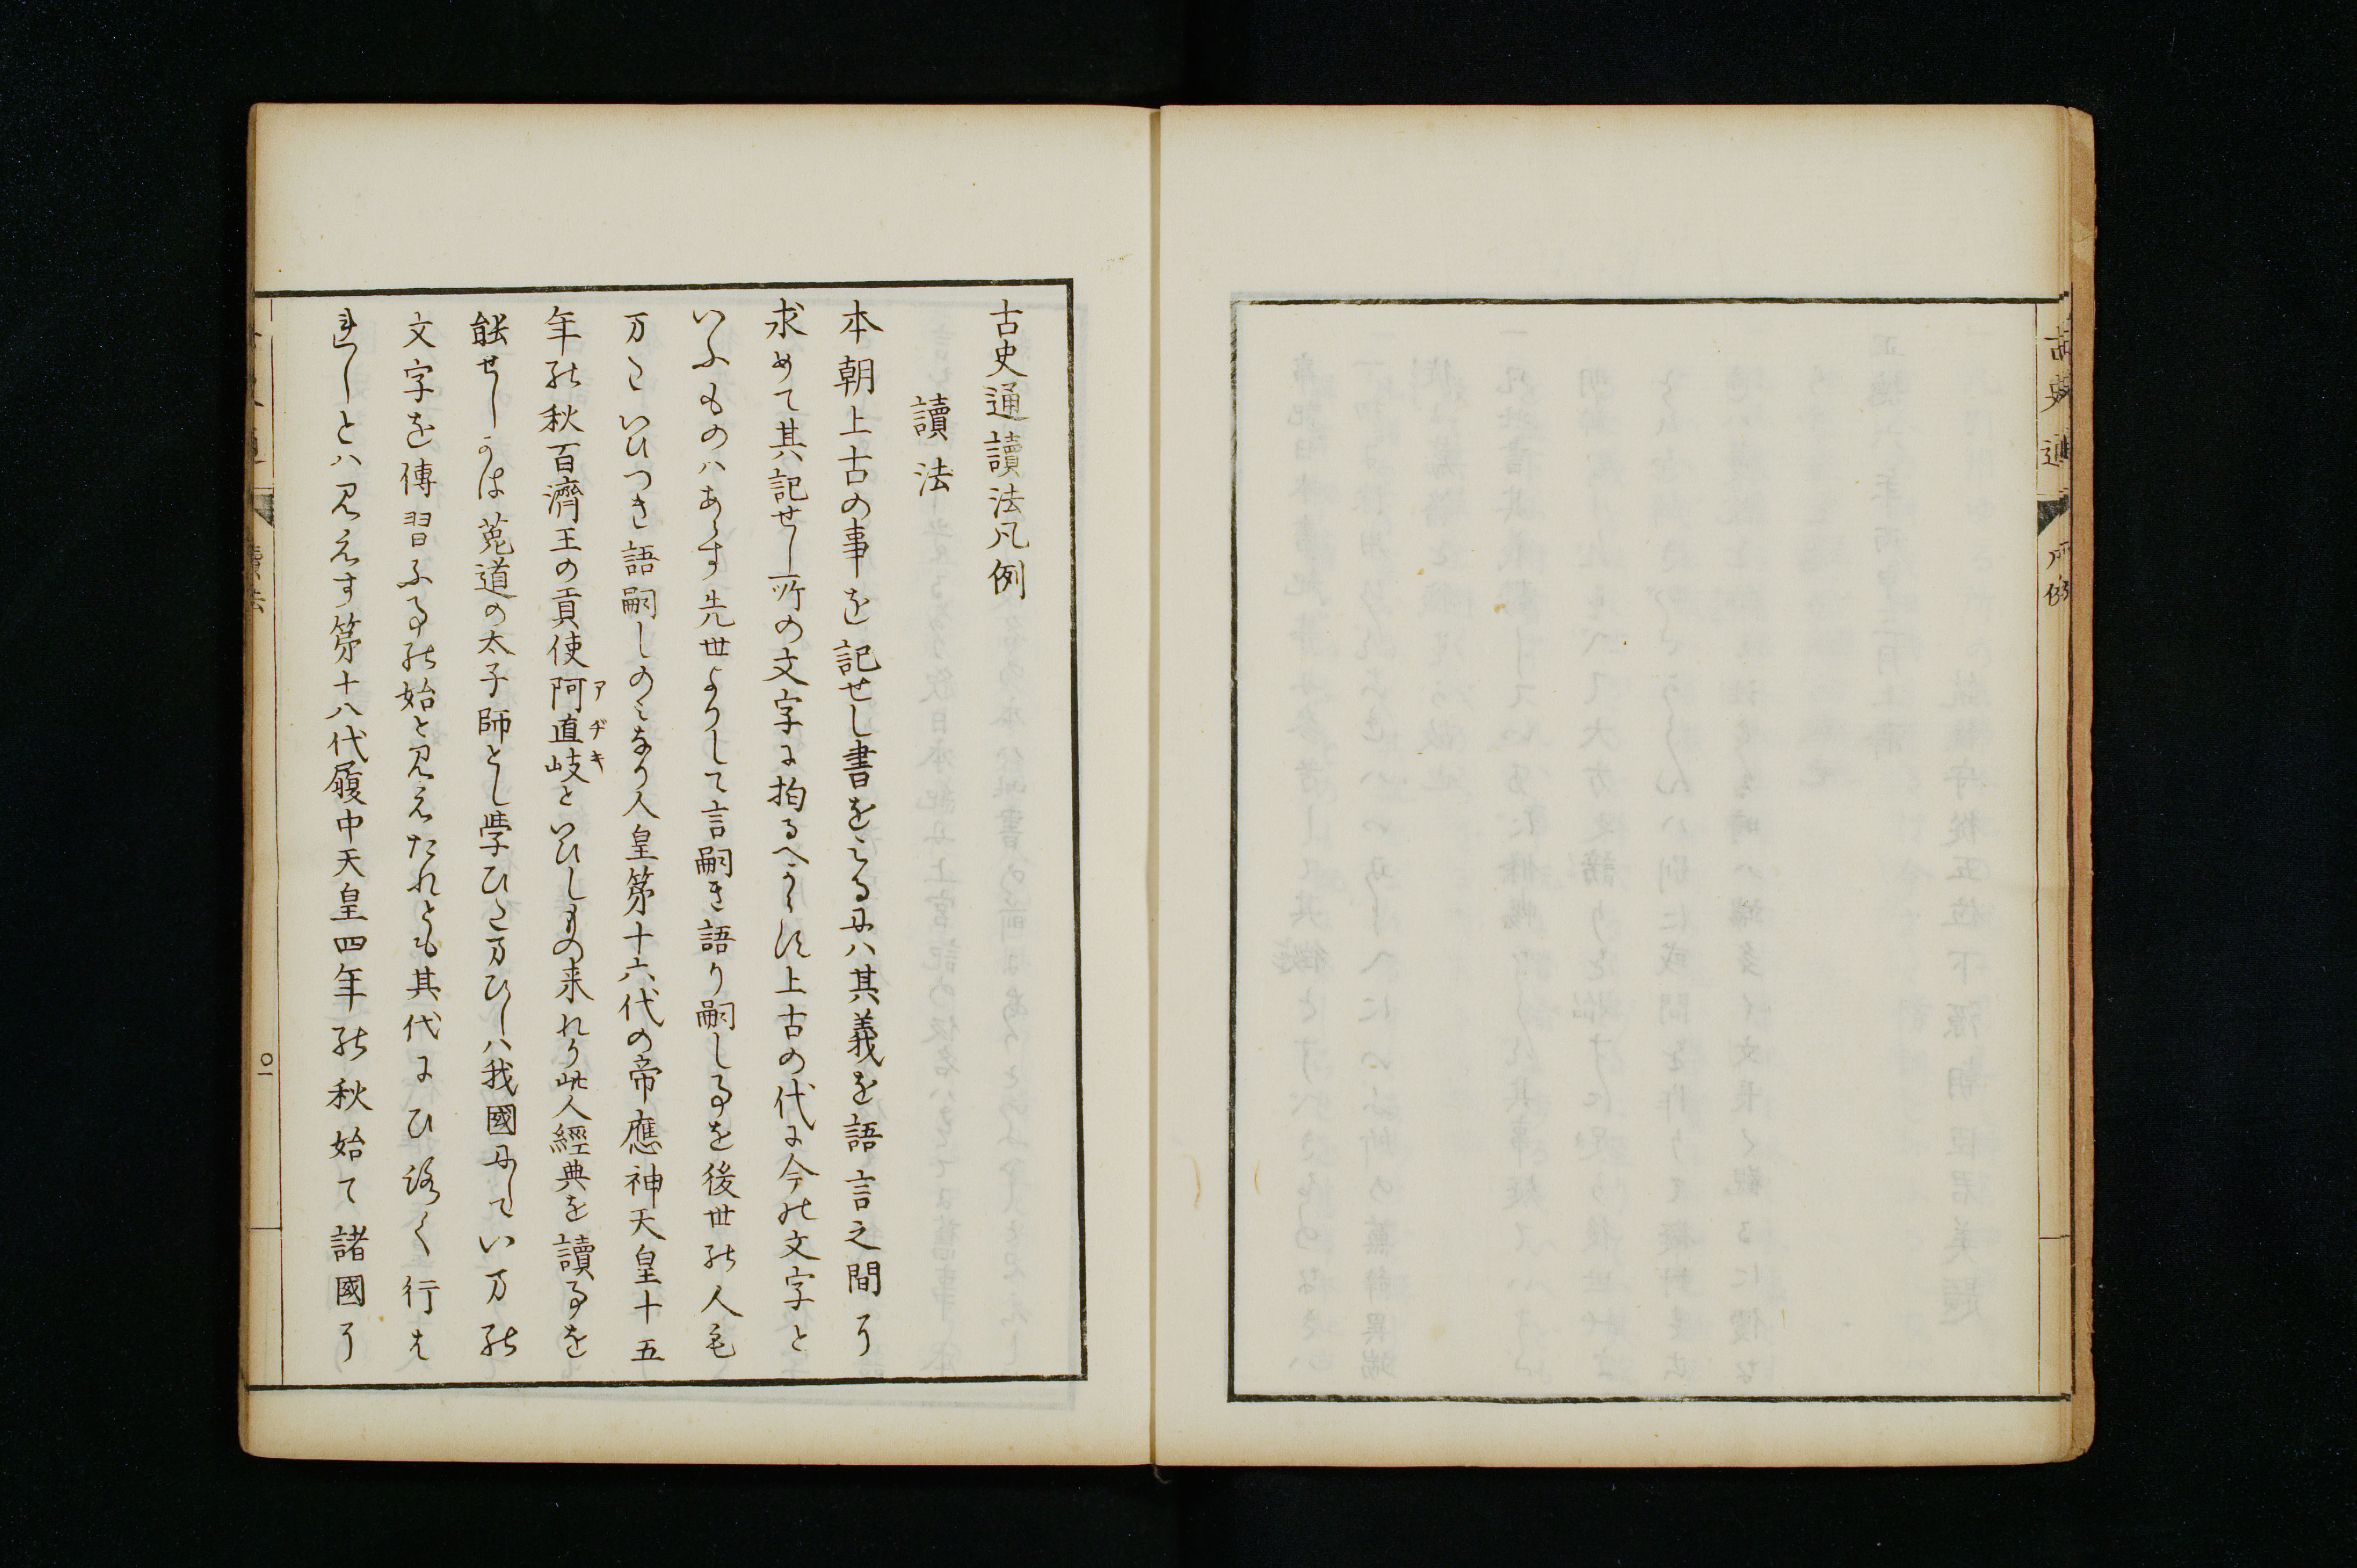 古史通讀法凡例
讀法
本朝上古の事を記せし書をみるにハ其義を語言之間に
求めて其記せし所の文字に拘るへからす上古の代に今の文字と
いふものハあらす先世よりして言嗣き語り嗣しことを後世の人も
またいひつき語嗣しのミなり人皇第十六代の帝應神天皇十五
年の秋百濟王の貢使阿直岐アヂキといひしもの来れり此人經典を讀ことを
能せしかは菟道の太子師とし學ひたまひしハ我國にしていまの
文字を傳習ふことの始と見えたれとも其代にひろく行は
れしとハ見えす第十八代履中天皇四年の秋始て諸國に
古史通
凡例
讀法
〇一